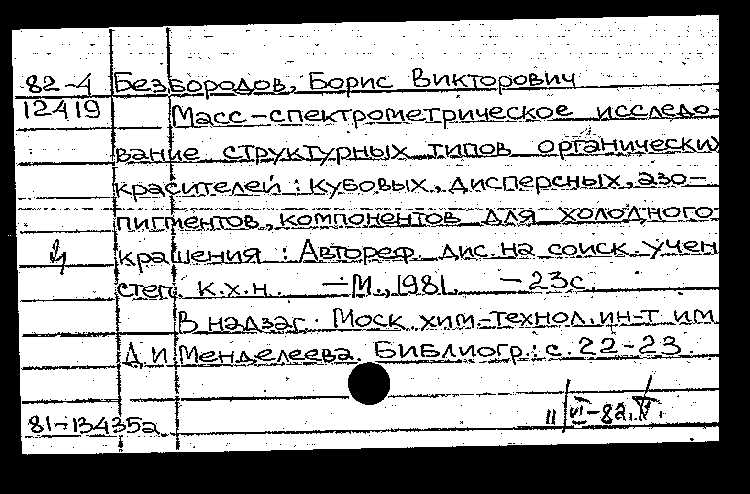 82-4 Безбородов, Борис Викторович
12419 Масс-спектрометрическое исследо-
вание структурных типов органических
красителей: кубовых, дисперсных, азо-
пигментов, компонентов для холодного
крашения : Автореф. дис. на соиск. учен.
степ. к.х.н. – М., 1981. – 23с.
В надзаг. Моск. хим-технол. ин-т им.
Д.И. Менделеева. Библиогр.: с. 22-23.
81-13435а 11/VI-82.